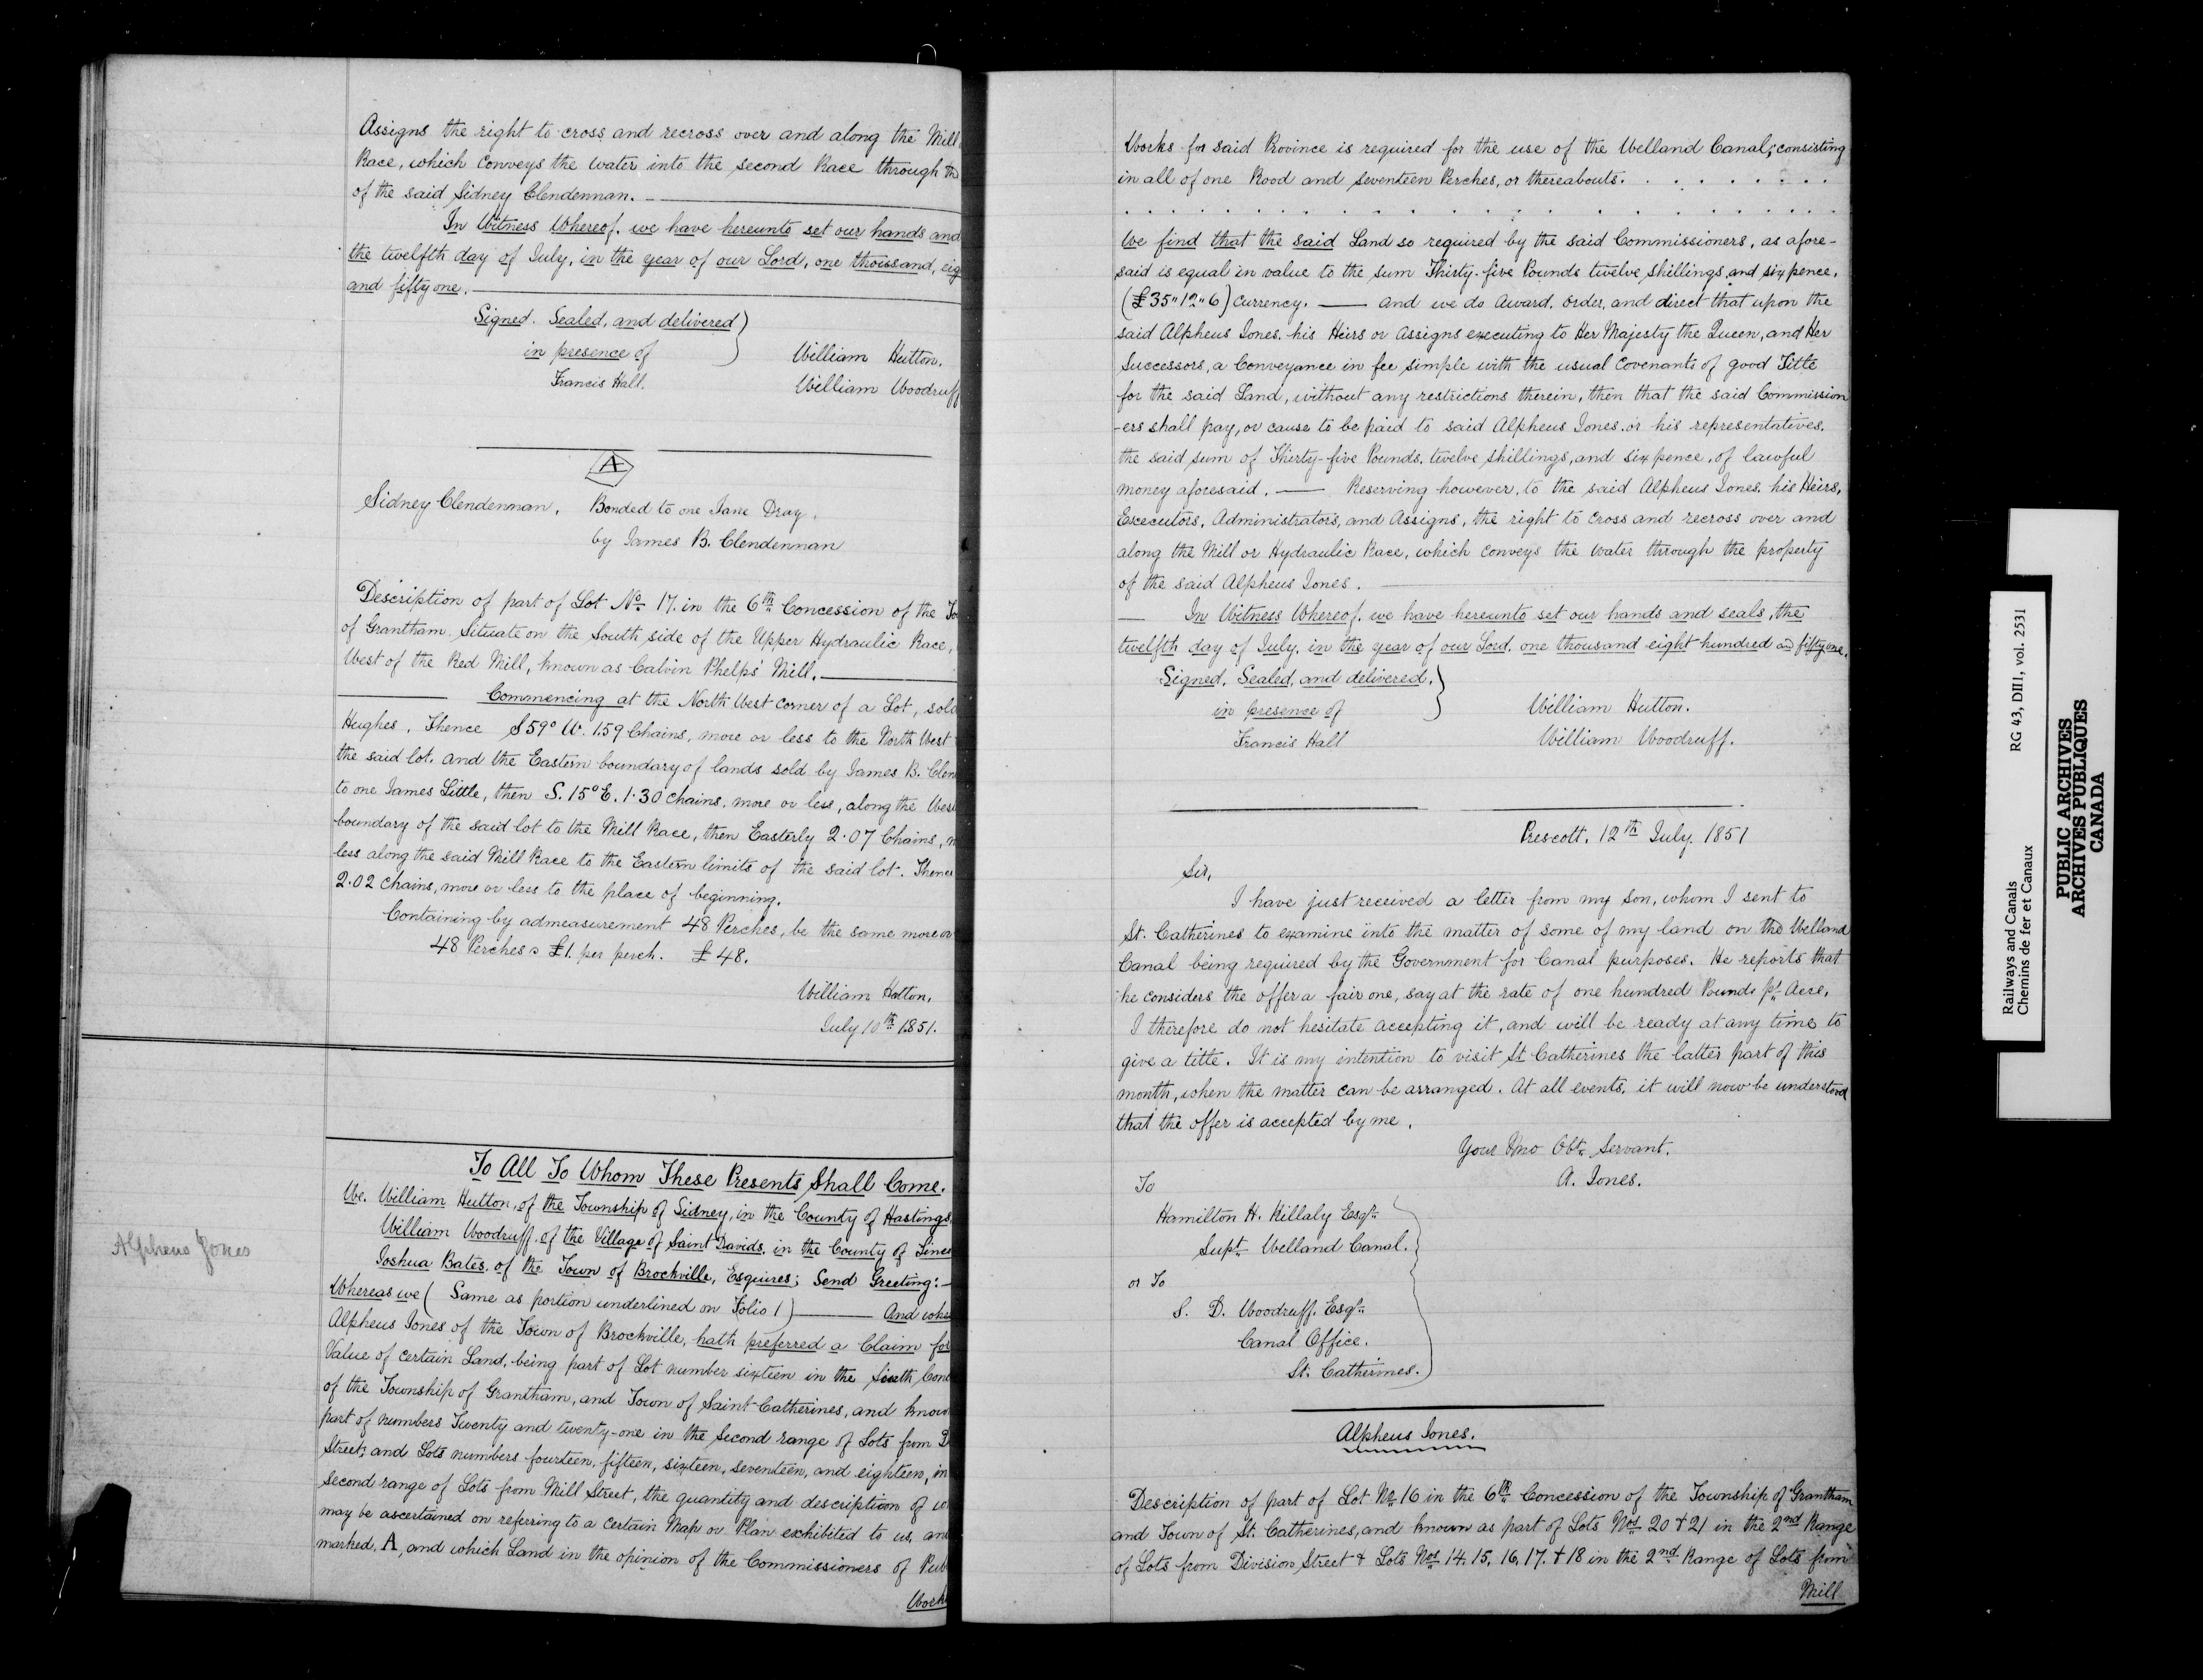 Assigns the right to cross and recross over and along the Mill
Race, which conveys the water into the second Race through the
of the said Sidney Clendennan.
In Witness Whereof. we have hereunto set our hands and
the twelfth day of July, in the year of our Lord, one thousand, eig
and fifty one.
Signed. Sealed, and delivered
in presence of
William Hutton.
Francis Hall.
William Woodruff
A
Sidney Clendennan. Bonded to one Jane Dray.
by James B. Clendennan
Description of part of Lot No. 17. in the 6th Concession of the To
of Grantham. Situate on the South side of the Upper Hydraulic Race,
West of the Red Mill, known as Calvin Phelps' Mill.
Commencing at the North West corner of a Lot, sold
Hughes. Thence S59° W. 1.59 Chains, more or less to the North West
the said lot. and the Eastern boundary of lands sold by James B. Clen
to one James Little, then S. 15° E. 1.30 chains. more or less, along the West
boundary of the said lot to the Mill Race, then Easterly 2.07 Chains, m
less along the said Mill Race to the Eastern limits of the said lot. Thence
2.02 chains, more or less to the place of beginning.
Containing by admeasurement 48 Perches, be the same more or
48 Perches @ £1. per perch. £48.
William Hutton.
July 10th 1851.
To All To Whom These Presents Shall Come.
We. William Hutton, of the Township of Sidney, in the County of Hastings.
William Woodruff. of the Village of Saint Davids. in the County of Linco
Joshua Bates. of the Town of Brockville, Esquires; Send Greeting:—
Whereas we ( Same as portion underlined on Folio 1 ) —— And whe
Alpheus Jones
Alpheus Jones of the Town of Brockville, hath preferred a Claim for
Value of certain Land, being part of Lot number sixteen in the Sixth Conc
of the Township of Grantham, and Town of Saint Catherines, and know
part of numbers Twenty and twenty-one in the Second range of Lots from D
Street; and Lots numbers fourteen, fifteen, sixteen, seventeen, and eighteen, in
second range of Lots from Mill Street, the quantity and description of w
may be ascertained on referring to a certain Map or Plan exhibited to us, and
marked. A, and which Land in the opinion of the Commissioners of Pub
Work
Works for said Province is required for the use of the Welland Canal; consisting
in all of one Rood and seventeen Perches, or thereabouts. . . . . . . . .
We find that the said Land so required by the said Commissioners, as afore-
said is equal in value to the sum Thirty-five Pounds twelve shillings, and six pence.
(£35"12"6) Currency. —— and we do Award. order, and direct that upon the
said Alpheus Jones. his Heirs or Assigns executing to Her Majesty the Queen, and Her
Successors, a Conveyance in fee simple with the usual Covenants of good Title
for the said Land, without any restrictions therein, then that the said Commission
-ers shall pay, or cause to be paid to said Alpheus Jones. or his representatives.
the said sum of Thirty-five Pounds. twelve shillings, and six pence. of lawful
money aforesaid. —— Reserving however, to the said Alpheus Jones. his Heirs,
Excecutors, Administrators, and Assigns, the right to cross and recross over and
along the Mill or Hydraulic Race, which conveys the water through the property
of the said Alpheus Jones.
— In Witness Whereof. we have hereunto set our hands and seals, the
twelfth day of July. in the year of our Lord. one thousand eight hundred and fifty one.
Signed. Sealed, and delivered.
in presence of
William Hutton.
Francis Hall
William Woodruff.
Prescott. 12th July. 1851
Sir,
I have just received a letter from my son, whom I sent to
St. Catherines to examine into the matter of some of my land on the Welland
Canal being required by the Government for Canal purposes. He reports that
he considers the offer a fair one, say at the rate of one hundred Pounds pr Acre.
I therefore do not hesitate accepting it, and will be ready at any time to
give a title. It is my intention to visit St Catherines the latter part of this
month, when the matter can be arranged. At all events, it will now be understood
that the offer is accepted by me.
Your Obt. Servant.
A. Jones.
To
Hamilton H. Killaly Esqr.
Supt. Welland Canal.
or To
S. D. Woodruff. Esqr.
Canal Office.
St. Catherines.
Alpheus Jones.
Description of part of Lot No. 16 in the 6th Concession of the Township of Grantham
and Town of St. Catherines, and known as part of Lots Nos 20 & 21 in the 2nd Range
of Lots from Division Street & Lots Nos 14. 15. 16. 17. & 18 in the 2nd Range of Lots from
Mill
Railways and Canals RG 43, DIII, vol. 2531
Chemins de fer et Canaux
PUBLIC ARCHIVES
ARCHIVES PUBLIQUES
CANADA